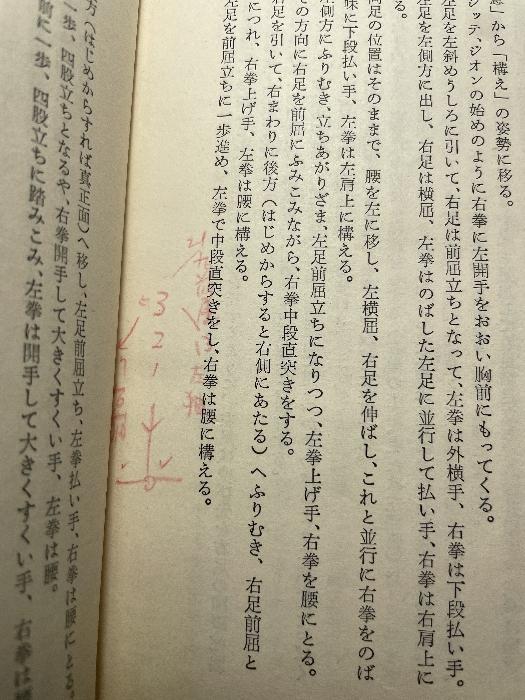 意」から「構え」の姿勢に移る。
シッテ、ジオンの始めのように右拳に左開手をおおい胸前にもってくる。
左足を左斜めうしろに引いて、右足は前屈立ちとなって、左拳は外横手、右拳は下段払い手。
左足を左側方に出し、右足は横屈、左拳はのばした左足に並行して払い手、右拳は右肩上に
る。
両足の位置はそのままで、腰を左に移し、左横屈、右足を伸ばし、これと並行に右拳をのば
味に下段払い手、左拳は左肩上に構える。
左側方にふりむき、立ちあがりざま、左足前屈立ちになりつつ、左拳上げ手、右拳を腰にとる。
その方向に右足を前屈にふみこみながら、右拳中段直突きをする。
右足を引いて、右まわりに後方（はじめからすると右側にあたる）へふりむき、右足前屈と
につれ、右拳上げ手、左拳は腰に構える。
左足を前屈立ちに一歩進め、左拳で中段直突きをし、右拳は腰に構える。
3
2
1
方（はじめからすれば真正面）へ移し、左足前屈立ち、左拳払い手、右拳は腰にとる。
一歩、四股立ちとなるや、右拳開手して大きくすくい手、左拳は腰。
前に一歩、四股立ちに踏みこみ、左拳は開手して大きくすくい手、右拳は腰